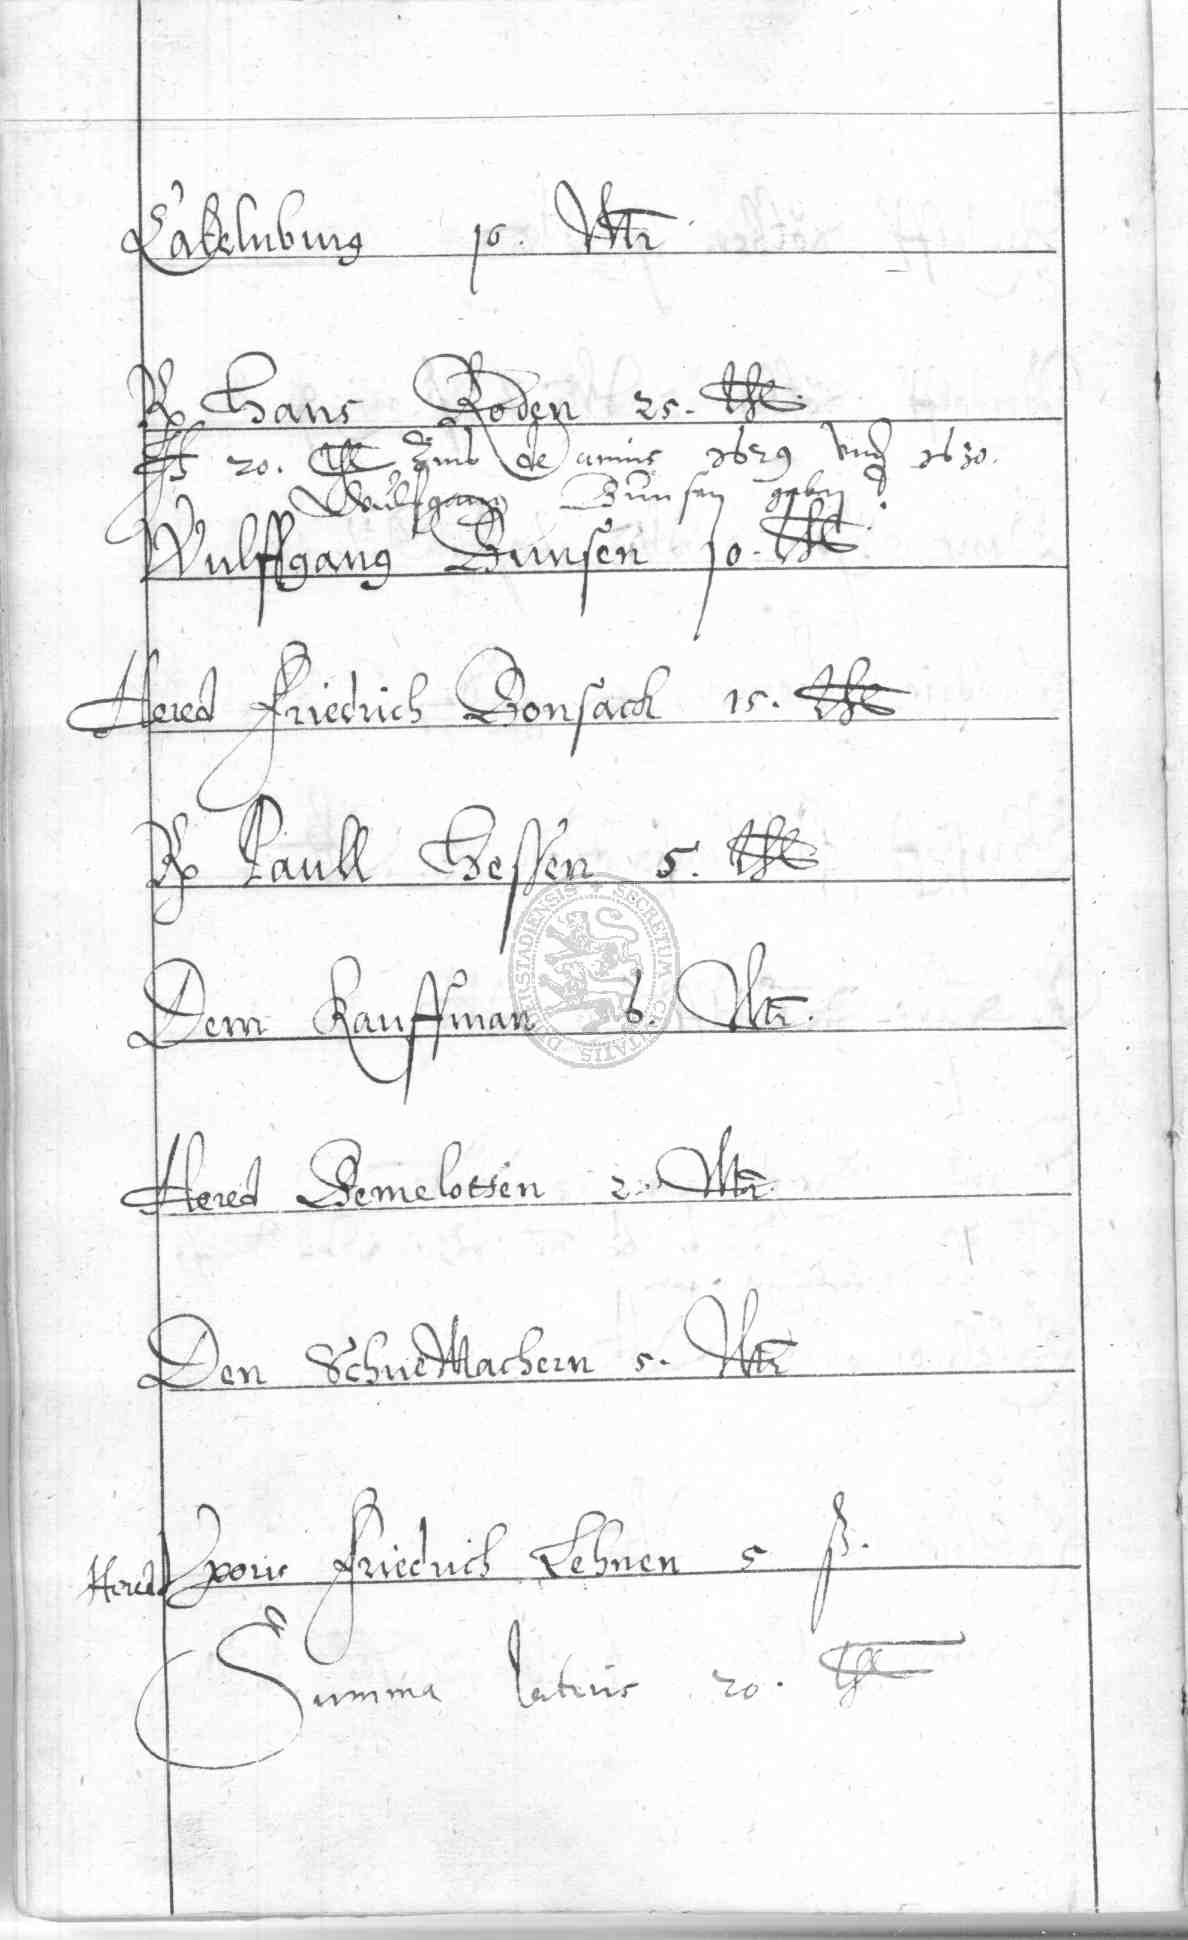 Catelnburg 16. Mr
Rx Hans Boden 25. thl
20. thl Zins de annis 1629 und 1630.
Wulffgang Bunsen geben
Wulffgang Bunsen 10. thl
Hered Friedrich Bonsack 15. thl
Rx Paull Hessen 5. thl
Dem Kauffman 6. Mr.
Hered Demelotsen 2. Mr.
Den SchueMachern 5. Mr
Hered Uxoris Friedrich Lehnen 5 ß.
Summa lateris 20. thl
SECRETUM CIVITATIS DUDERSTADIENSIS